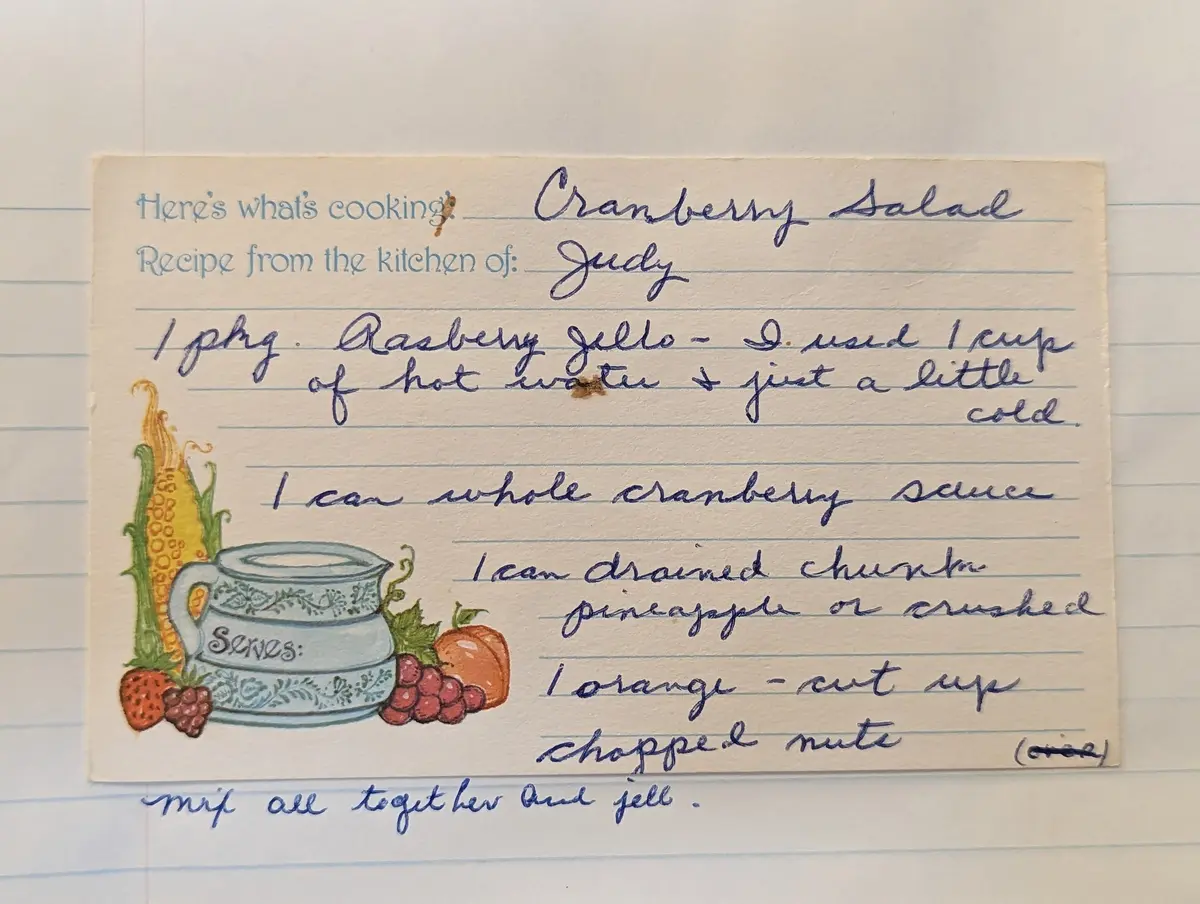 Here's what's cooking: Cranberry Salad
Recipe from the kitchen of: Judy
1 pkg. Rasberry Jello - I used 1 cup
of hot water & just a little
cold.
1 can whole cranberry sauce
1 can drained chunk
pineapple or crushed
1 orange - cut up
chopped nuts (over)
Serves:
mix all together and jell.